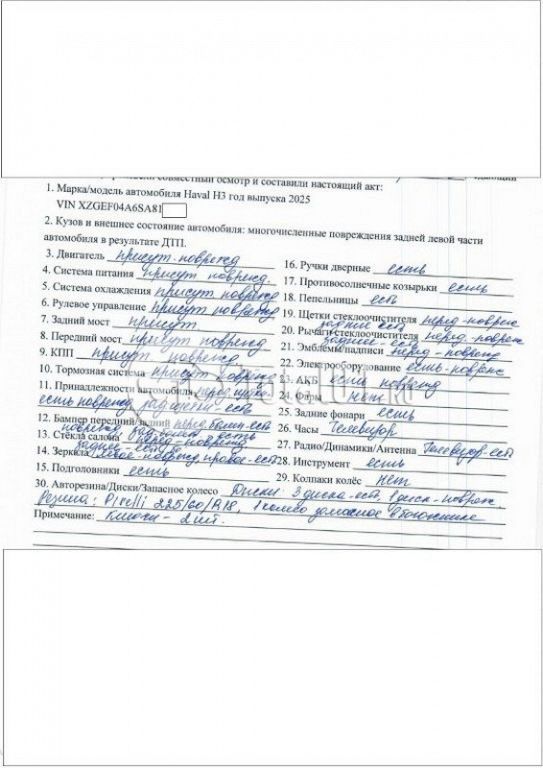 совместный осмотр и составили настоящий акт:
1. Марка/модель автомобиля Haval H3 год выпуска 2025
VIN XZGEF04A6SA81
2. Кузов и внешнее состояние автомобиля: многочисленные повреждения задней левой части
автомобиля в результате ДТП.
3. Двигатель присут. поврежд
4. Система питания присут поврежд.
5. Система охлаждения присут поврежд
6. Рулевое управление присут поврежд
7. Задний мост присут
8. Передний мост присут поврежд
9. КПП присут поврежд.
10. Тормозная система присут поврежд
11. Принадлежности автомобиля перед
есть поврежд, зад есть
12. Бампер передний/задний перед бампер-есть
поврежд, зад есть
13. Стёкла салона перед-поврежд
заднее
14. Зеркала левое-поврежд, правое-есть
15. Подголовники есть
16. Ручки дверные есть
17. Противосолнечные козырьки есть
18. Пепельницы есть
19. Щетки стеклоочистителя перед-поврежд
заднее есть
20. Рычаги стеклоочистителя перед-поврежд
заднее - есть
21. Эмблемы/надписи перед - поврежд
22. Электрооборудование есть-поврежд
23. АКБ есть поврежд
24. Фары нет
25. Задние фонари есть
26. Часы Телевизор
27. Радио/Динамики/Антенна Телевизор-есть
28. Инструмент есть
29. Колпаки колёс нет
30. Авторезина/Диски/Запасное колесо Диски: 3 диска-есть, 1 диск-поврежд.
Резина: Pirelli 225/60/R18, 1 колесо запасное в багажнике
Примечание: Ключи - 2 шт.